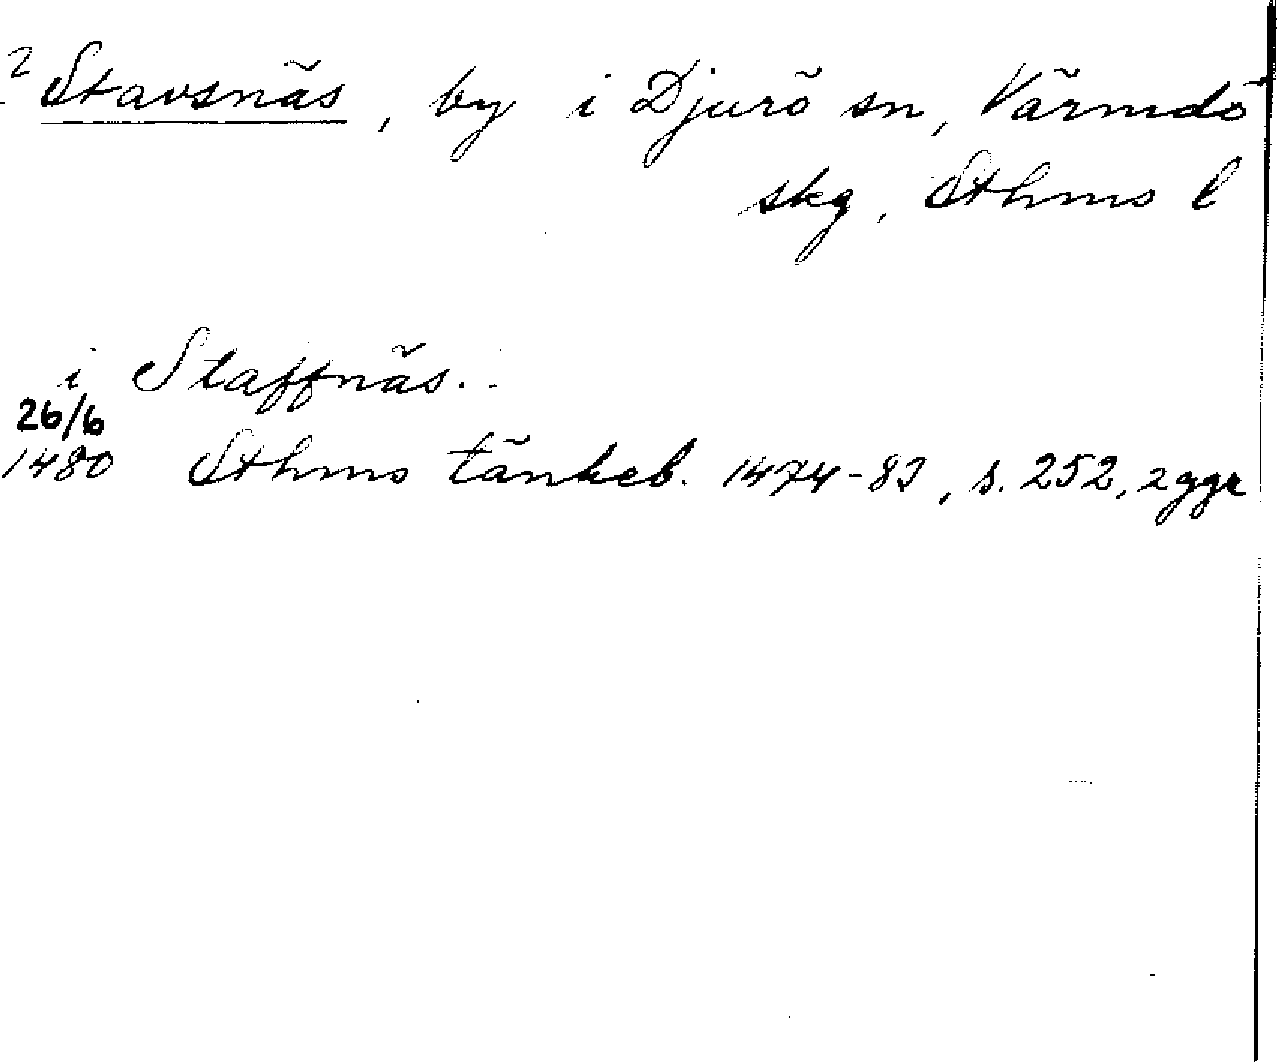 2 Stavsnäs, by i Djurö sn, Värmdö
skg, Sthms l
i Staffnäs..
26/6
1480 Sthms tänkeb. 1474-83, s. 252, 2 ggr